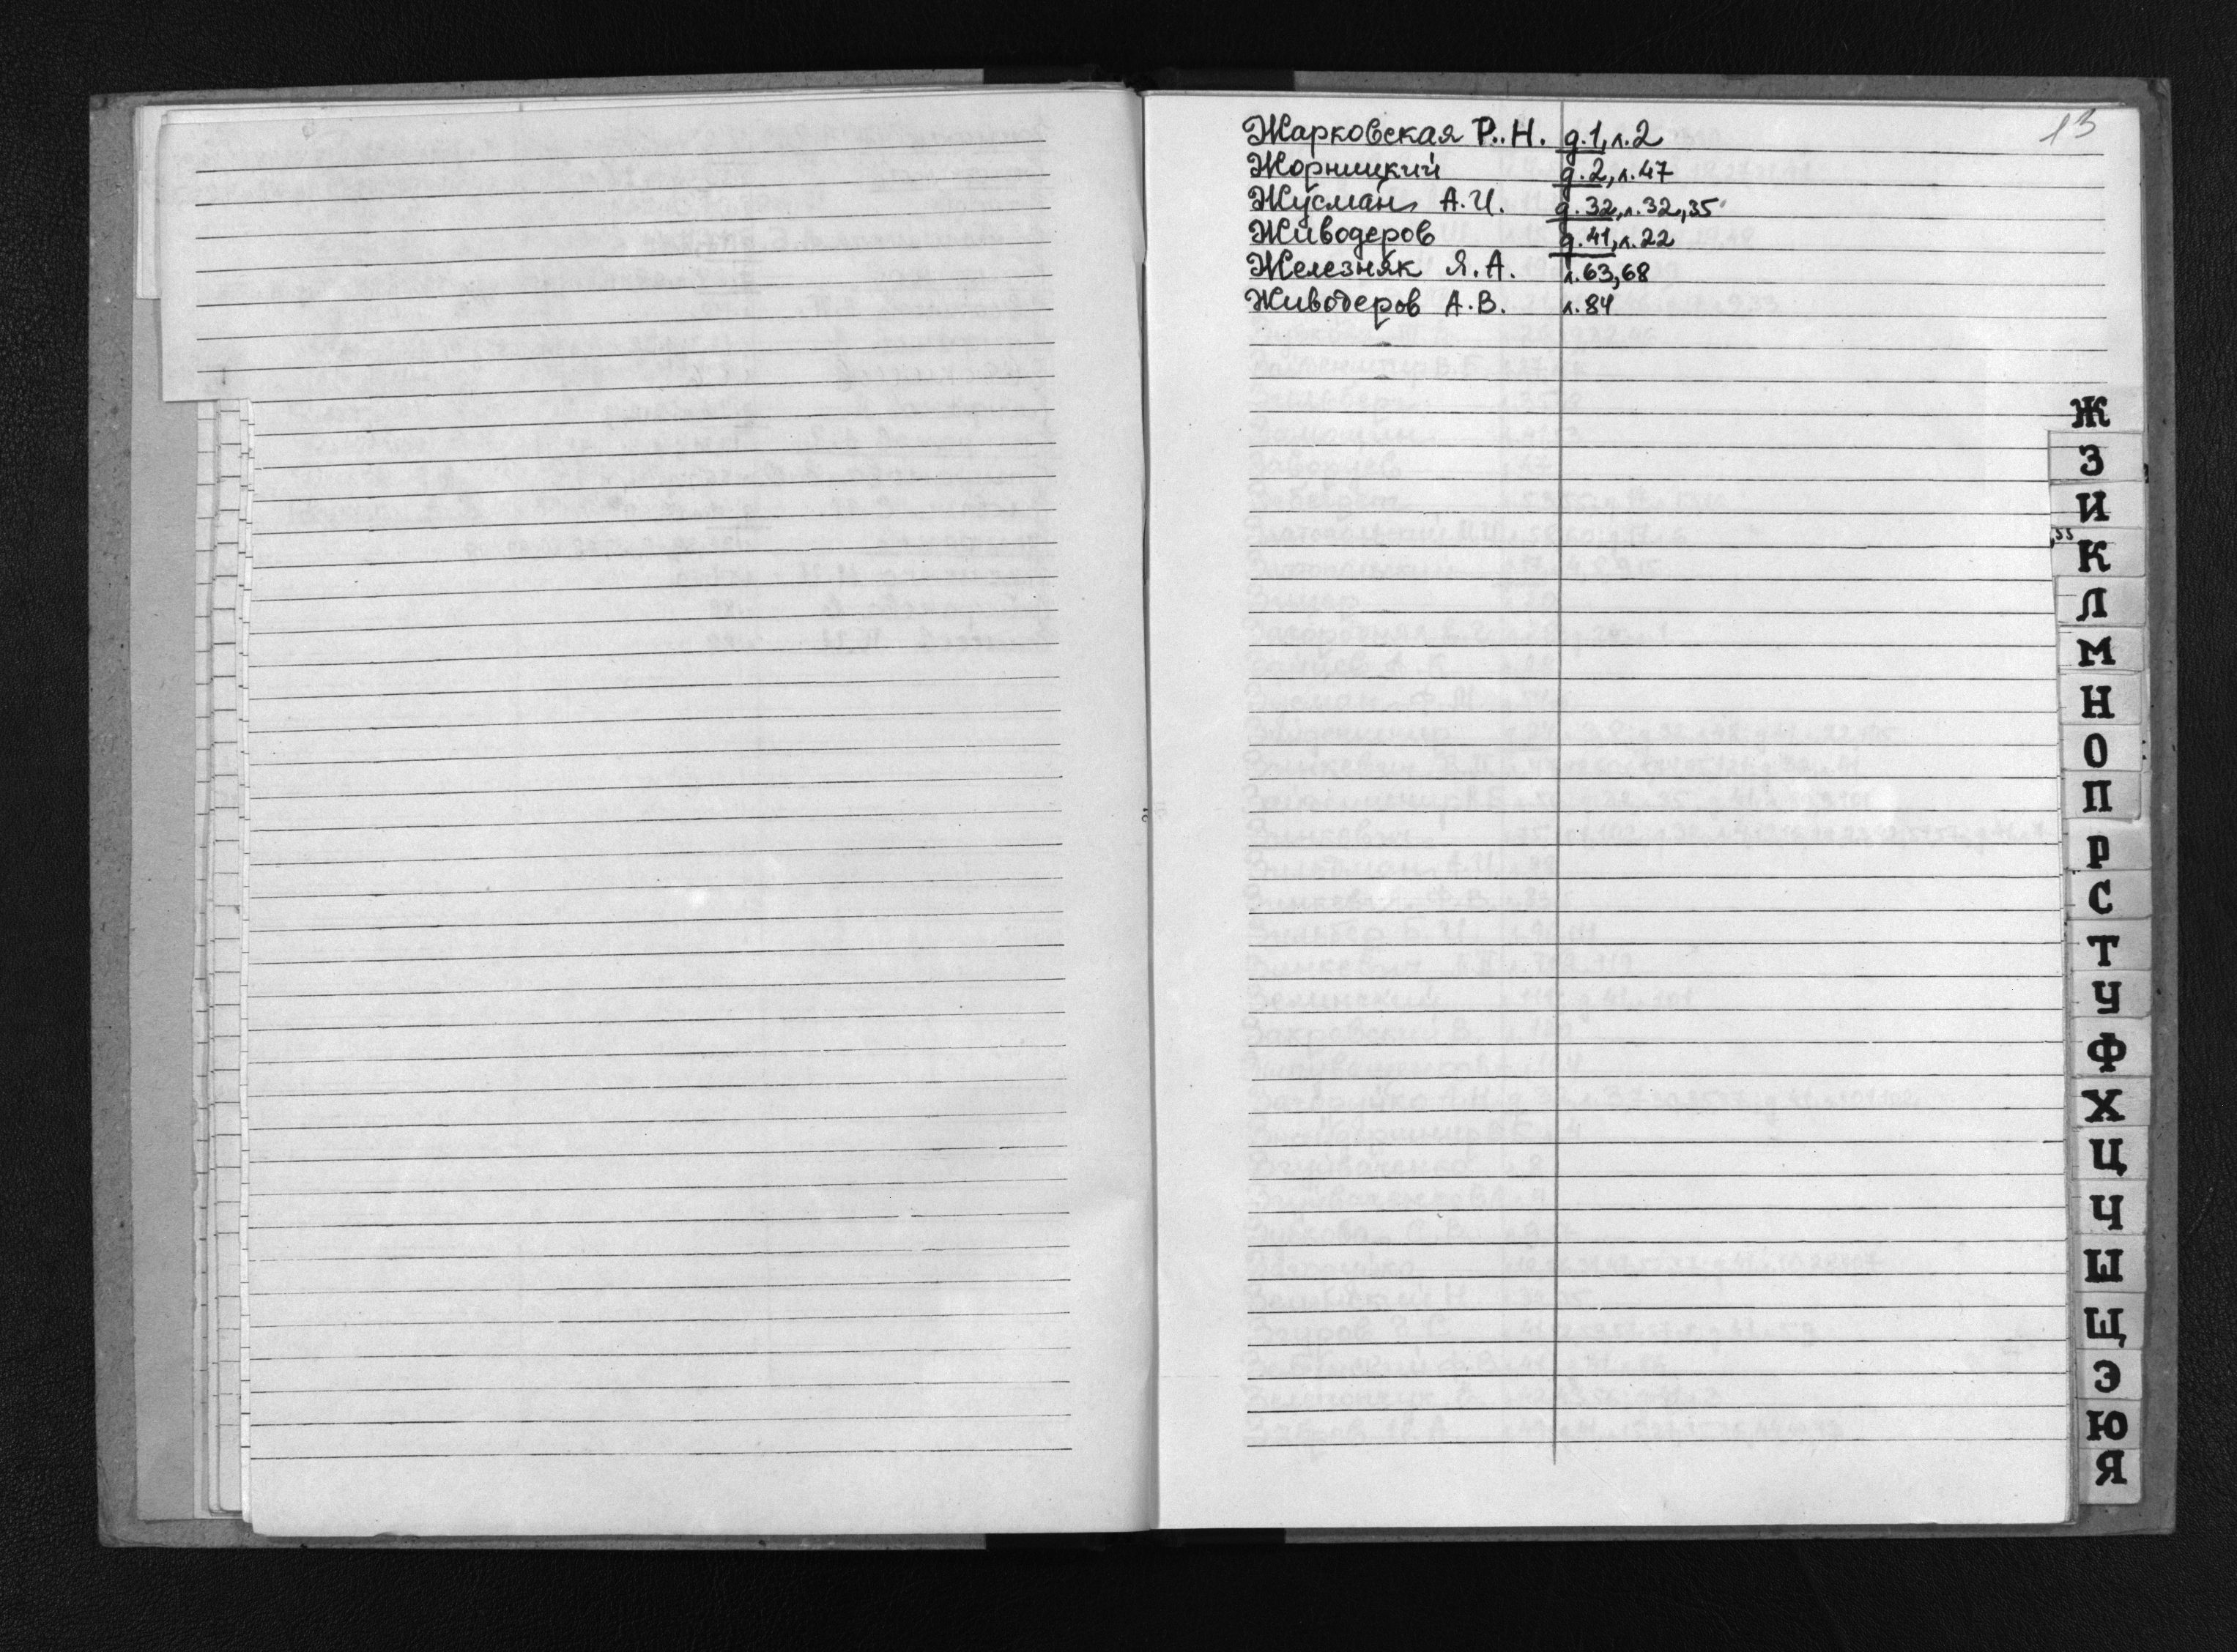 13
Жарковская Р.Н. д.1, л.2
Жорницкий д.2, л.47
Жусман А.И. д.32, л.32,35
Живодеров д.41, л.22
Железняк Я.А. л.63,68
Живодеров А.В. л.84
Ж
З
И
,55
К
Л
М
Н
О
П
Р
С
Т
У
Ф
Х
Ц
Ч
Ш
Щ
Э
Ю
Я